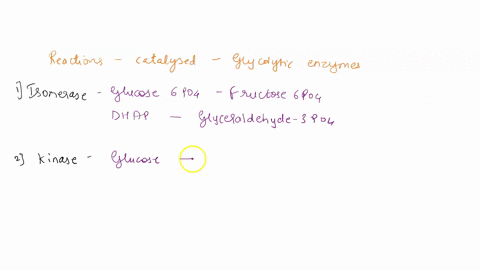 Reactions - catalysed - Glycolytic enzymes
1] Isomerase - Glucose 6 PO4 - Fructose 6PO4
DHAP - Glyceraldehyde-3 PO4
2] Kinase - Glucose -